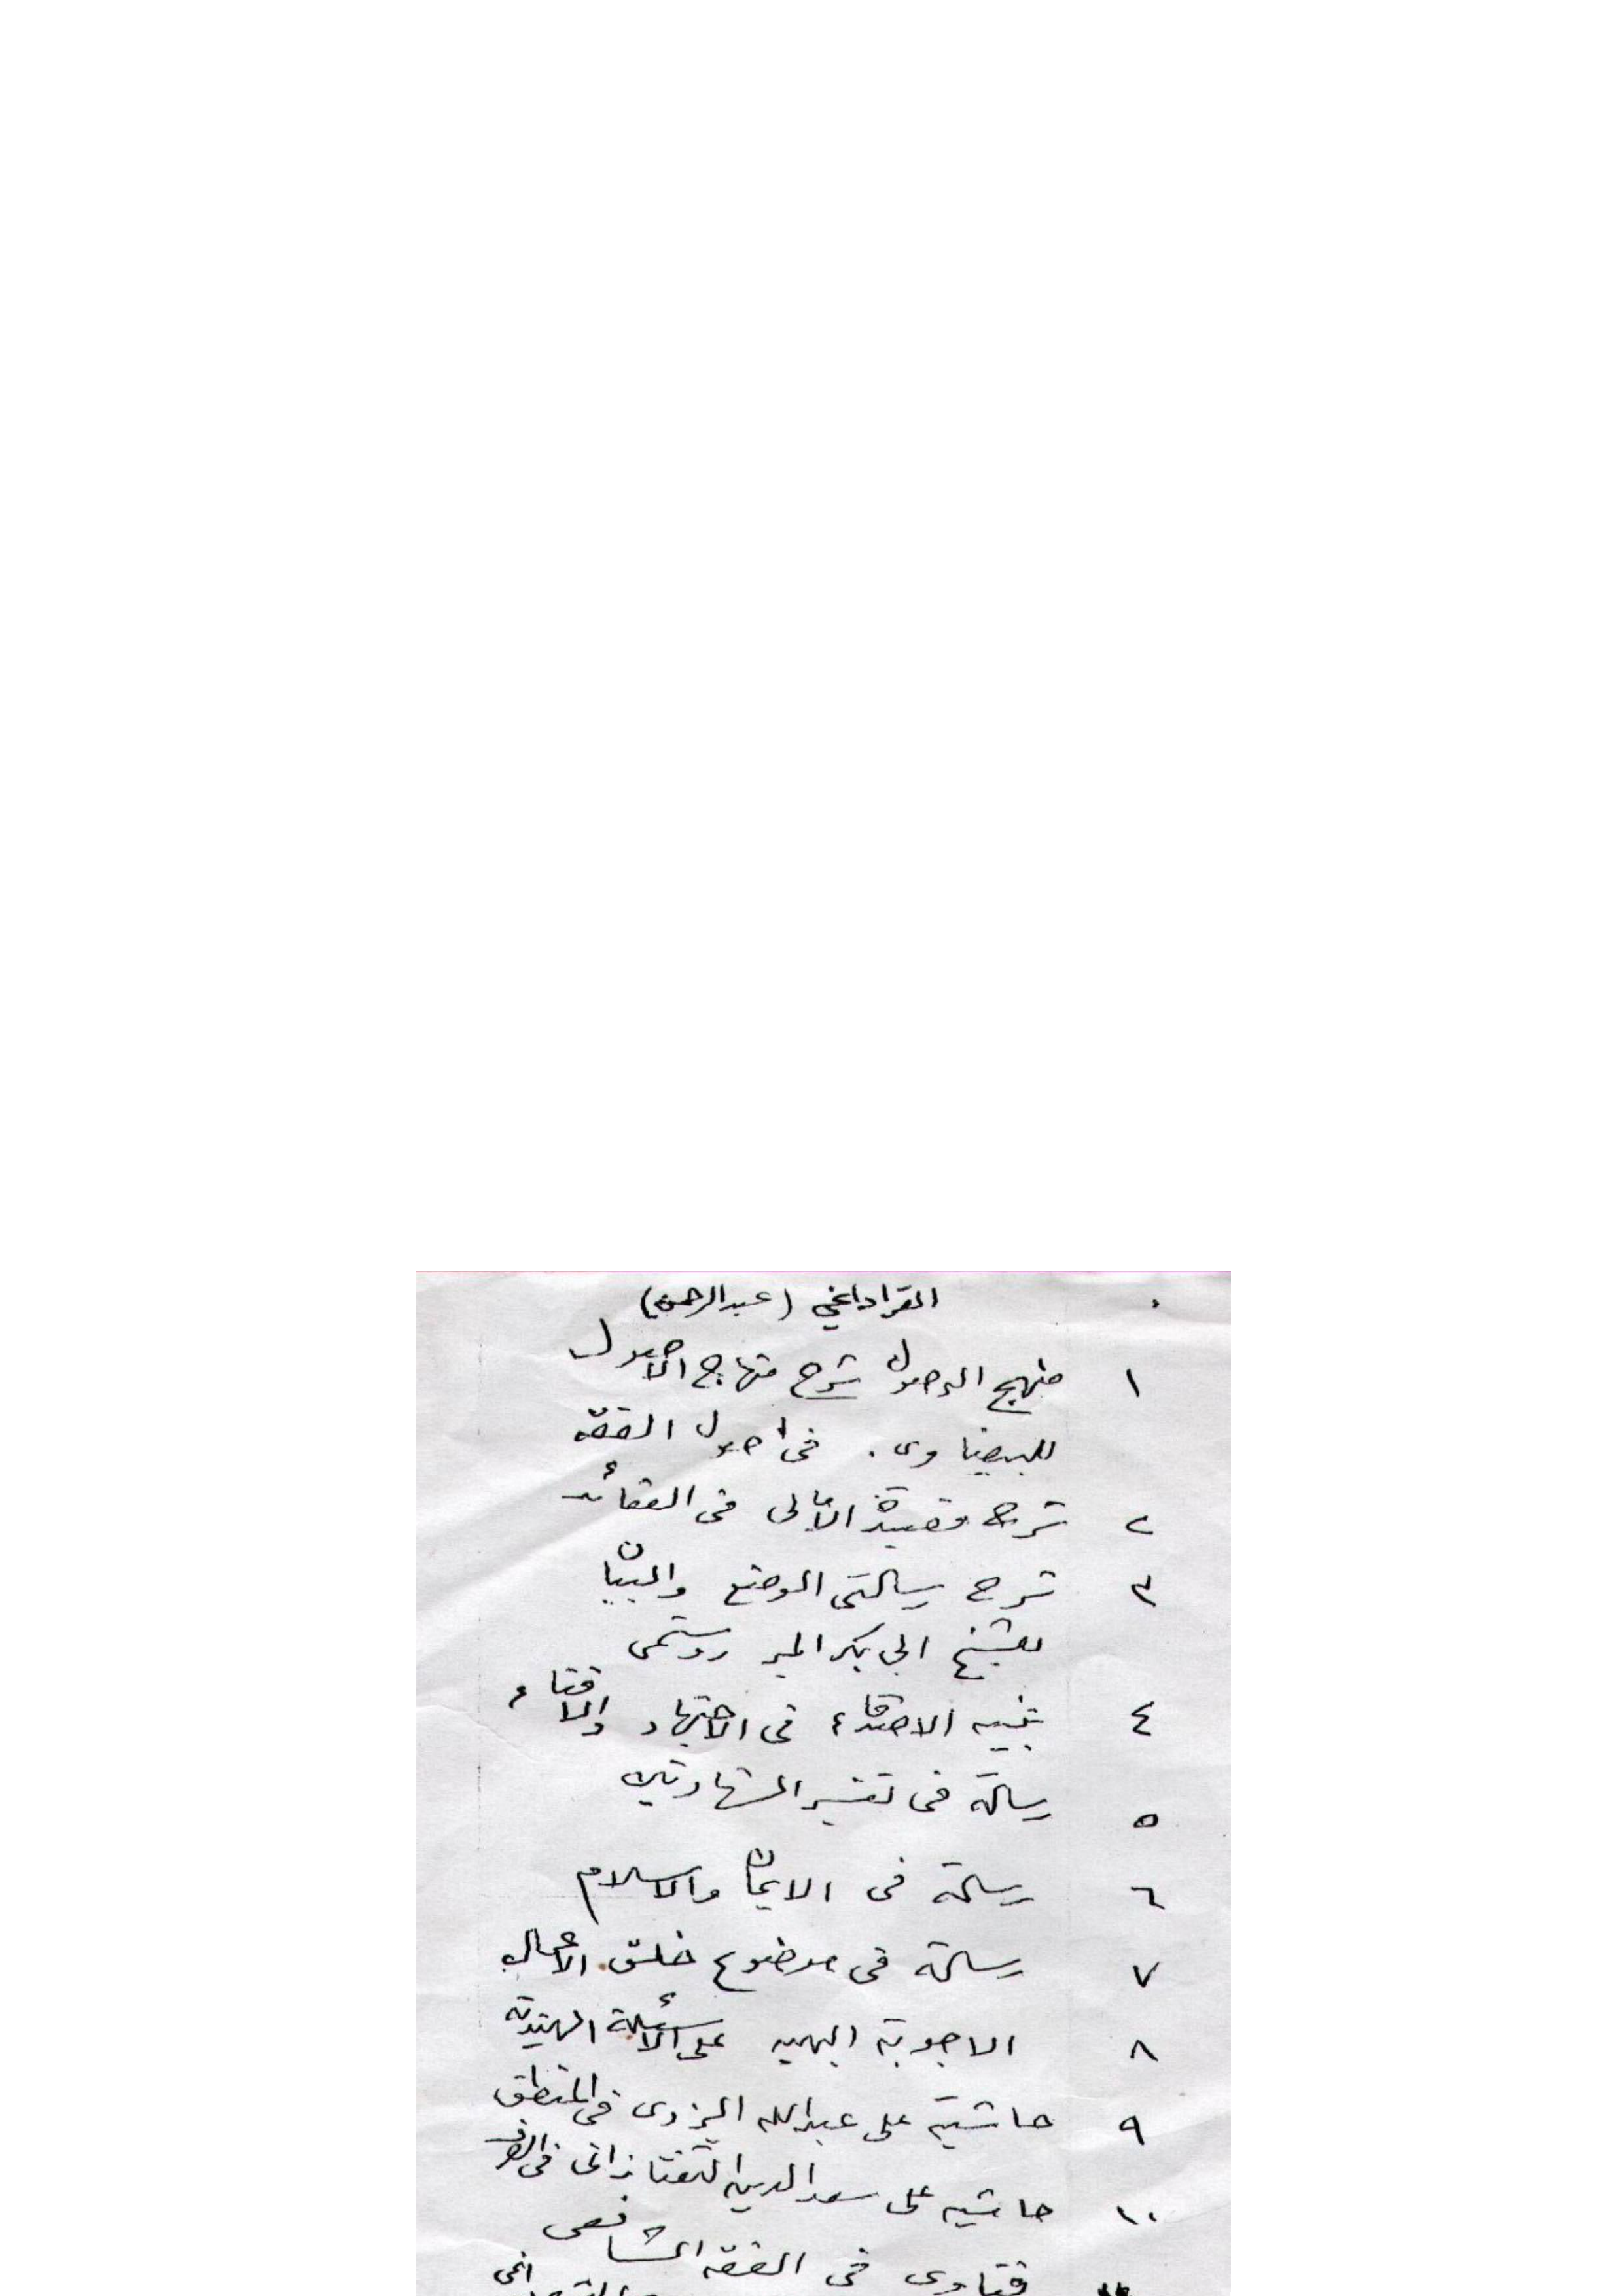 القراداغي (عبدالرحمن)
١ منهج الوصول شرح منهاج الاصول
للبيضاوى . فى اصول الفقه
٢ شرح قصيدة الامالى فى العقائد
٣ شرح رسالتى الوضع والبيان
للشيخ ابى بكر المير روستمى
٤ تنبيه الاصدقاء فى الاجتهاد والافتاء
٥ رسالة فى تفسير الشهادتين
٦ رسالة فى الايمان والاسلام
٧ رسالة فى موضوع خلق الاعمال
٨ الاجوبة البهيه على الأسئلة الهندية
٩ حاشية على عبدالله اليزدى فى المنطق
١٠ حاشيه على سعدالدين التفتازانى فى الصرف
فتاوى فى الفقه الشافعى